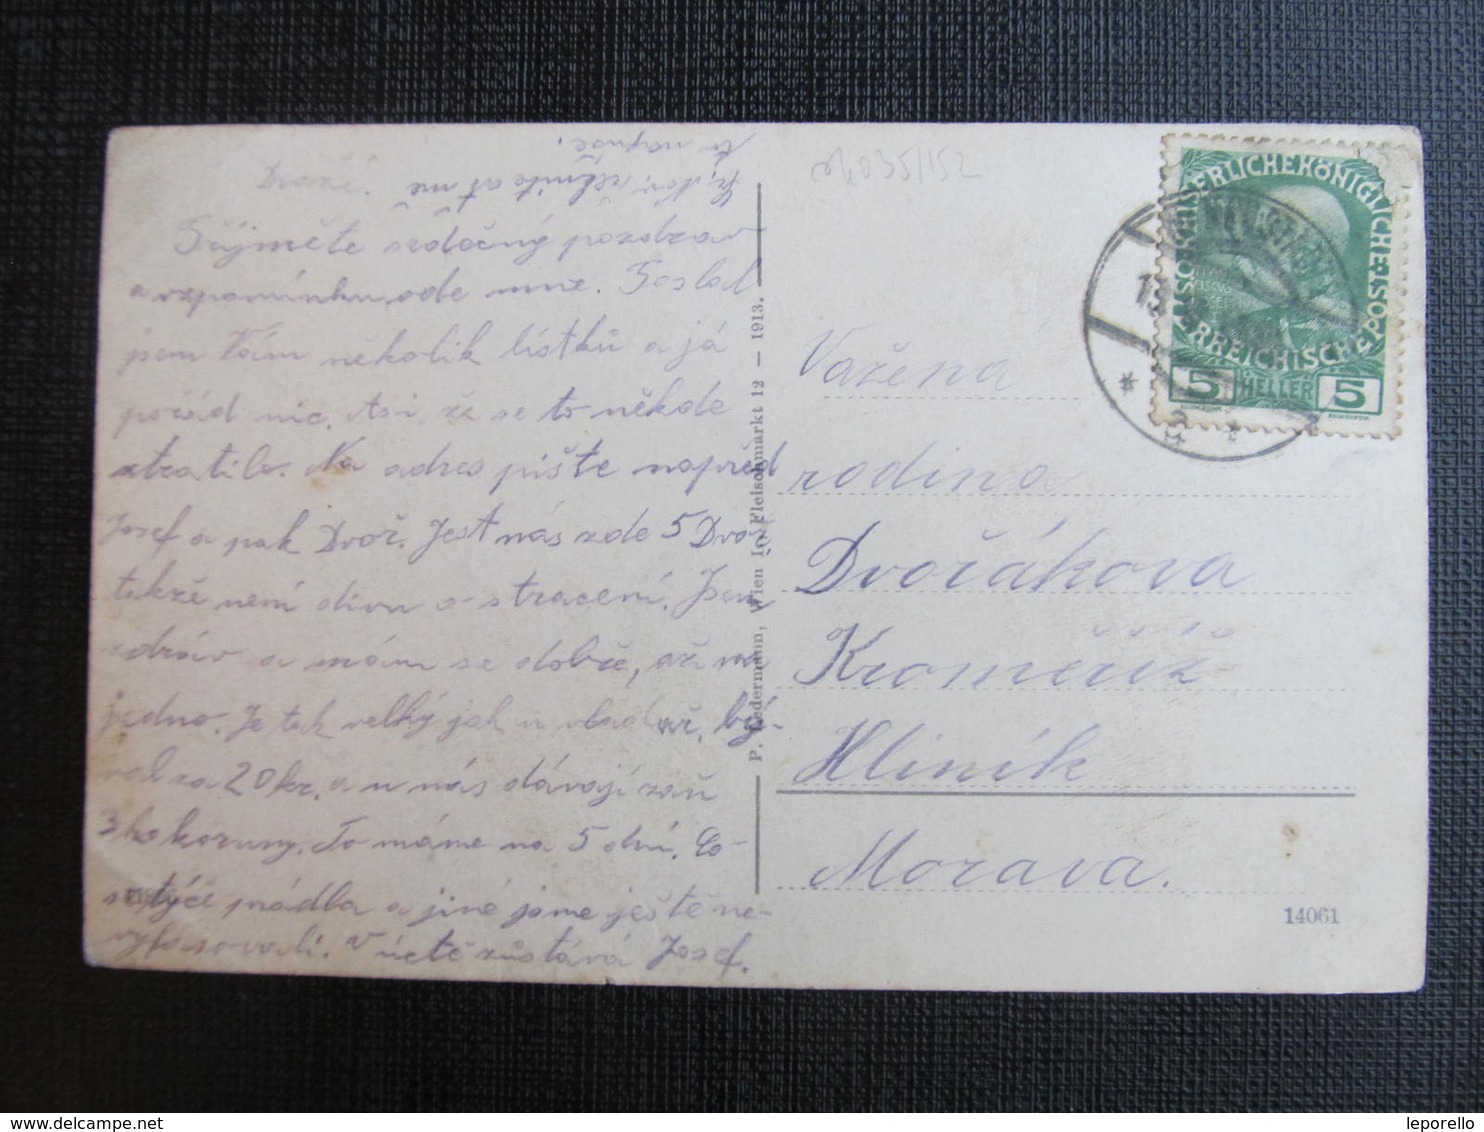 to napíše.
řekněte at mě
Drazí.
Přijměte srdečný pozdrav
a vzpomínku ode mne. Poslal
jsem Vám několik lístků a já
pořád nic. Asi že se to někde
ztratilo. Na adres pište napřed
Josef a pak Dvoř. Jest nás zde 5 Dvoř.
takže není divu o stracení. Jsem
zdráv a mám se dobře, až na
jedno. Je tak velký jak u vladař, bý-
val za 20 kr. a u nás dávají zaň
3 ho koruny. To máme na 5 dní. Co-
se týče prádla a jiné jsme ještě ne-
vyfasovali. V úctě zůstává Josef.
P. Ledermann, Wien I., Fleischmarkt 12 — 1913.
035/152
KAISERLICHE KÖNIGLICHE ÖSTERREICHISCHE POST
5 HELLER 5
13
Vážená
rodina
Dvořákova
Kroměříž
Hliník
Morava.
14061
leporello
delcampe.net